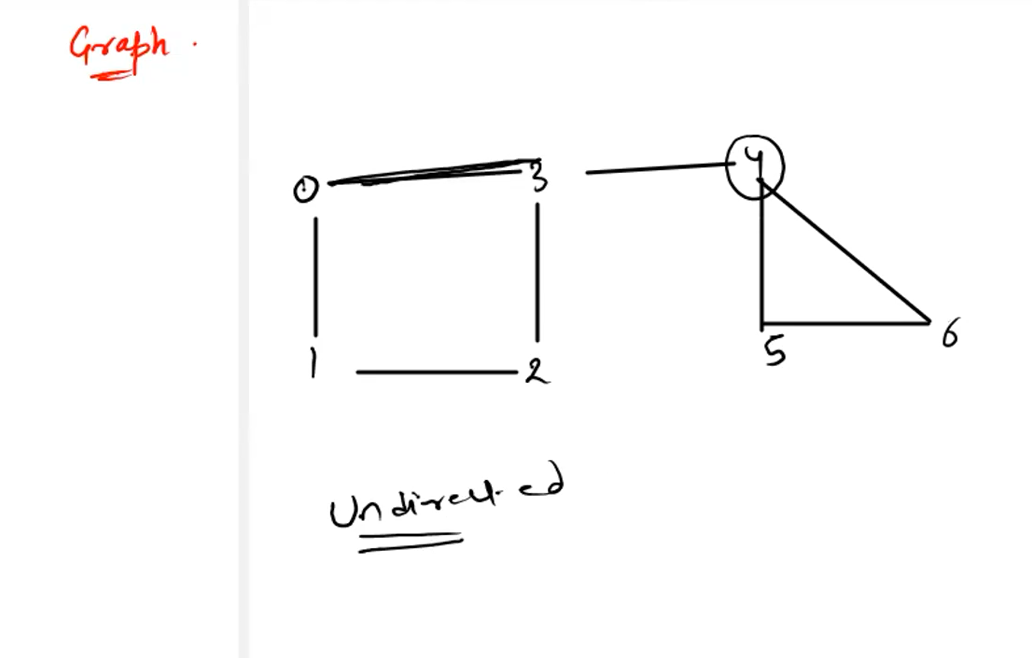 Graph .
0 3 4
1 2 5 6
Undirected